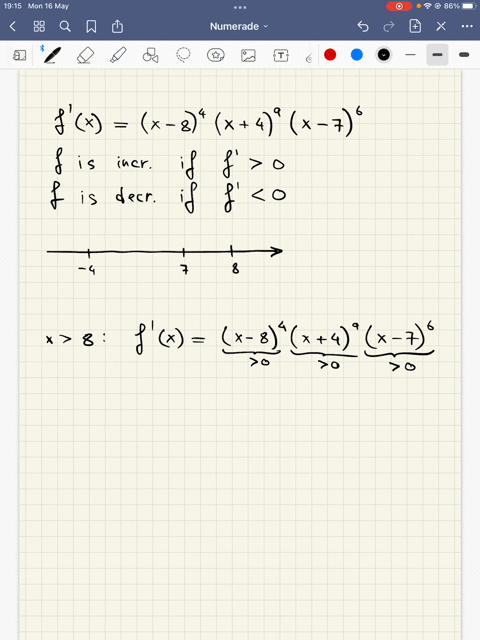 19:15 Mon 16 May 86%
Numerade
T
f'(x) = (x-8)⁴ (x+4)⁹ (x-7)⁶
f is incr. if f' > 0
f is decr. if f' < 0
-4 7 8
x > 8: f'(x) = (x-8)⁴ (x+4)⁹ (x-7)⁶
>0 >0 >0